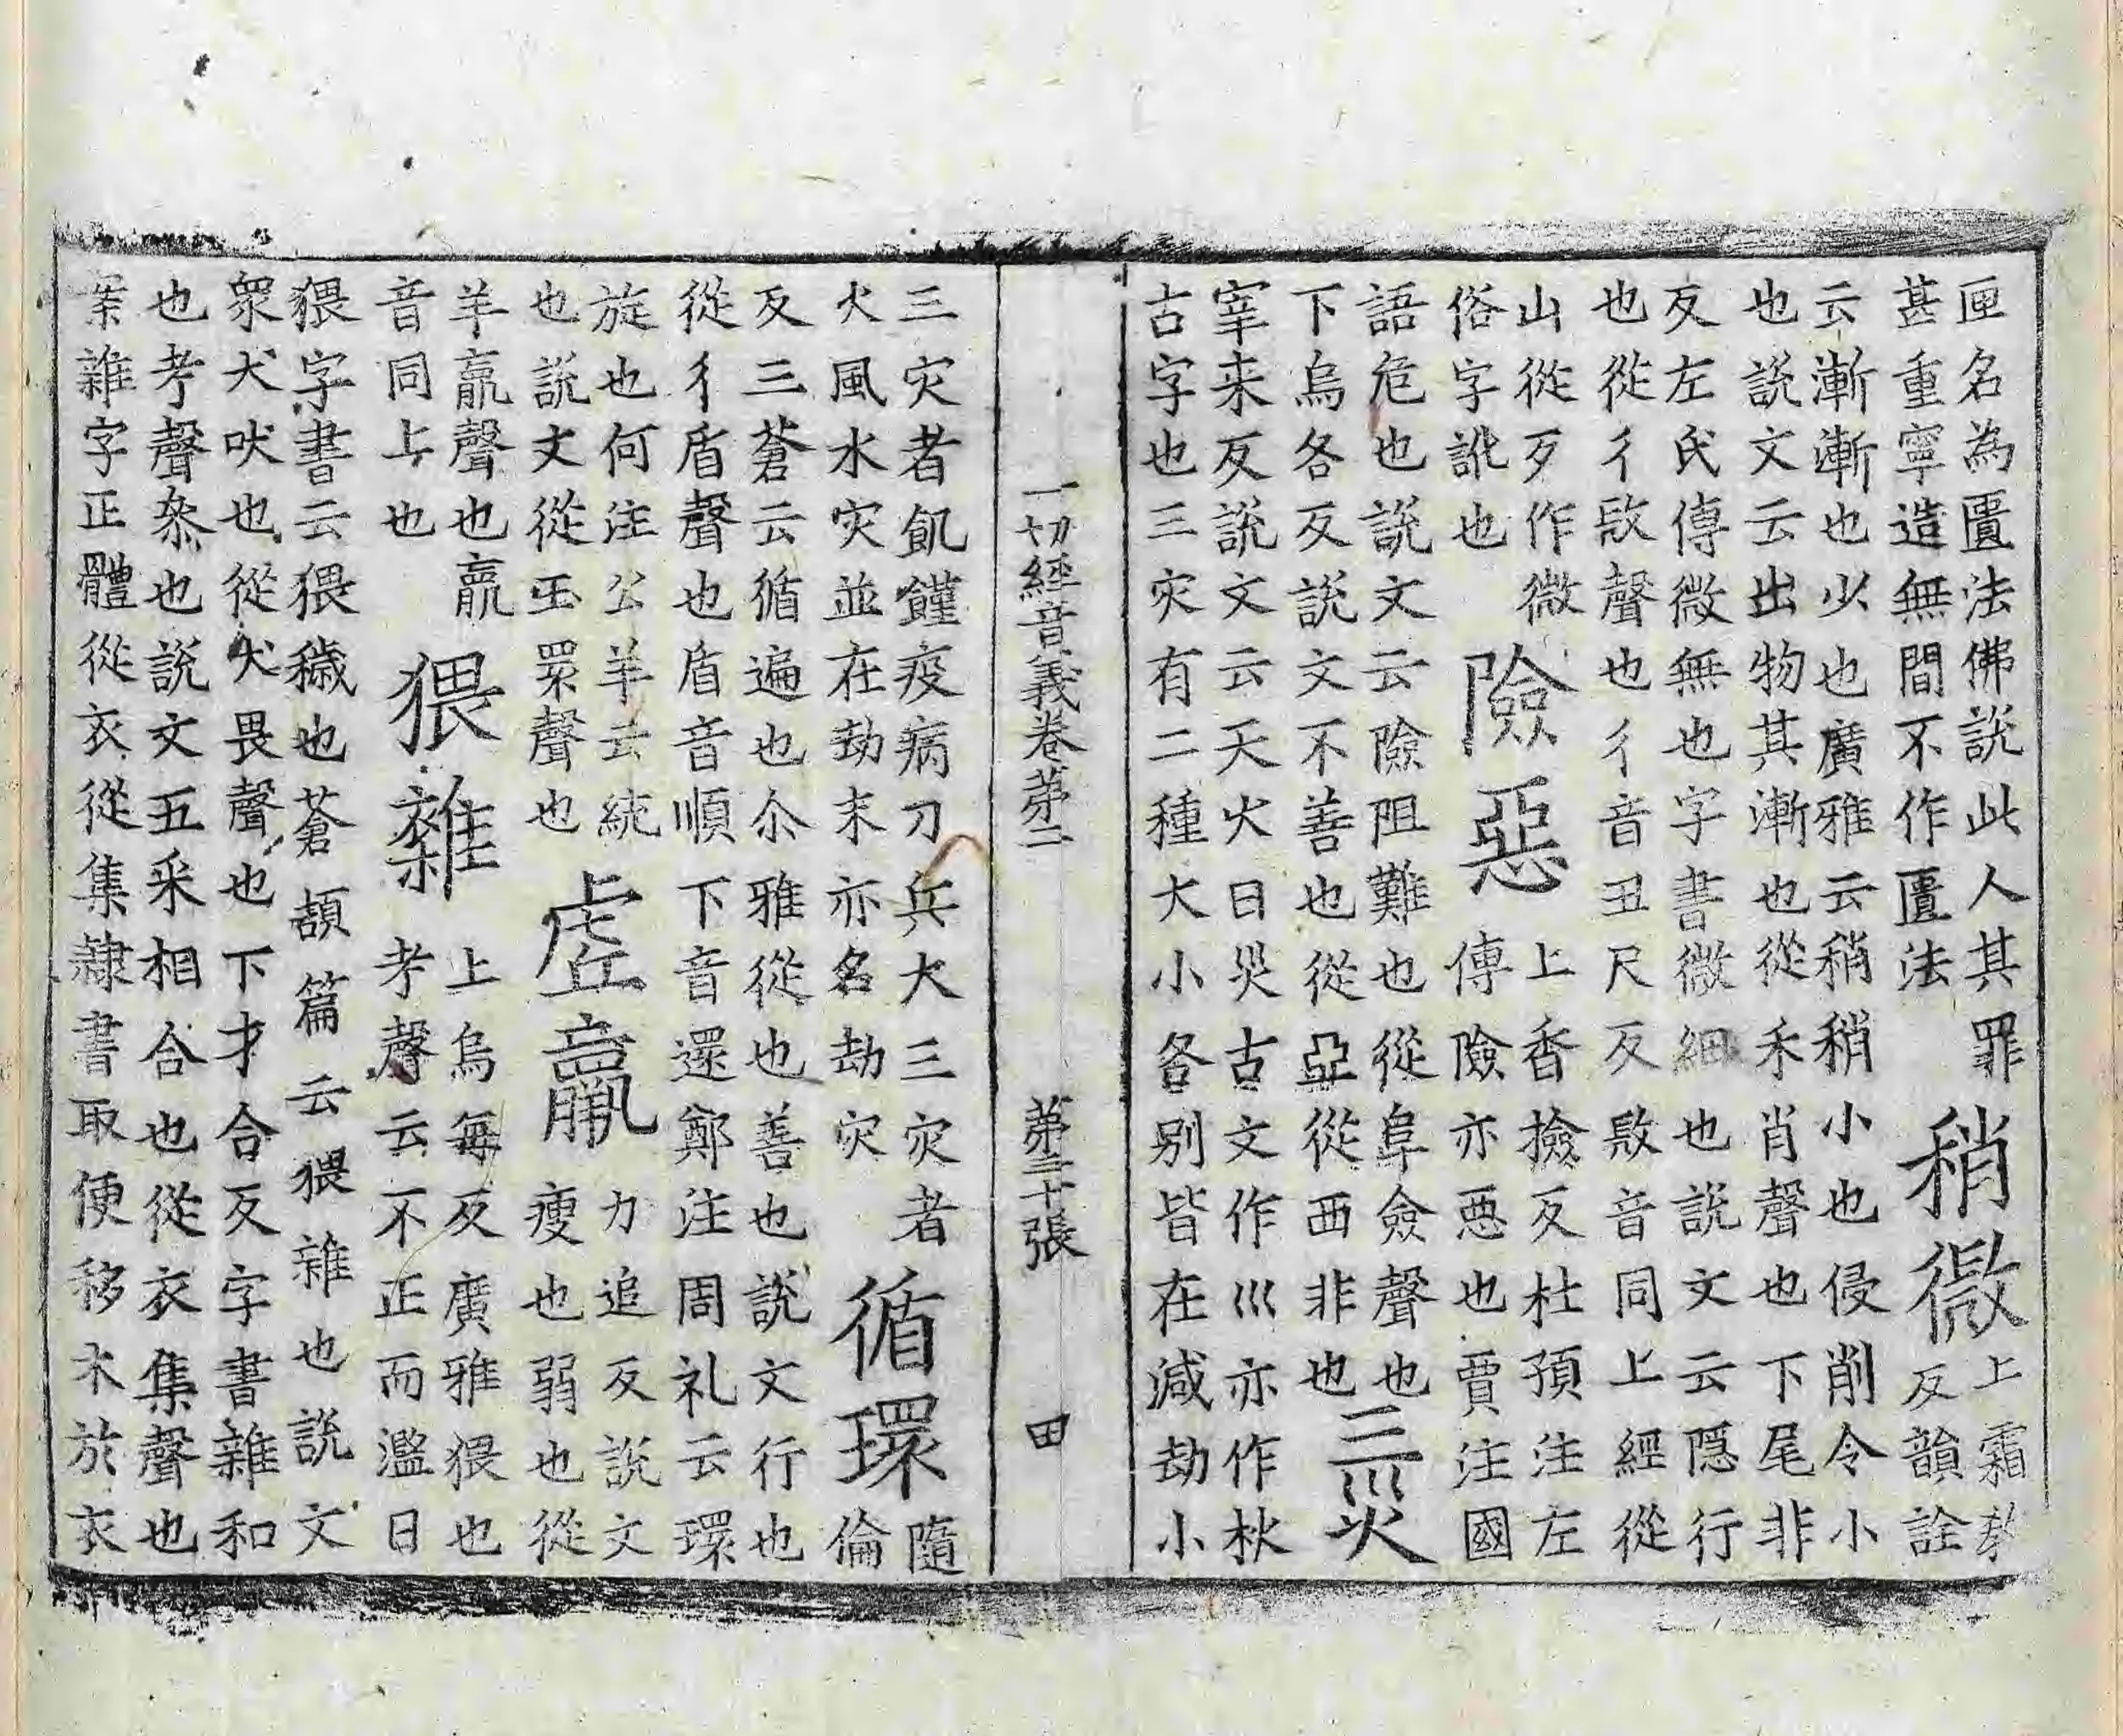 匣名為匱法佛說此人其罪
甚重寧造無間不作匱法
稍微
上霜
反韻詮
云漸漸也少也廣雅云稍稍小也侵削令小
也說文云出物其漸也從禾肖聲也下尾非
反左氏傳微無也字書微細也說文云隱行
也從彳敚聲也彳音丑尺反敚音同上經從
山從歹作微
俗字訛也
險惡
上香撿反杜預注左
傳險亦惡也賈注國
語危也說文云險阻難也從阜僉聲也
下烏各反說文不善也從亞從西非也
三災
宰来反説文云天火曰災古文作巛亦作秋
古字也三灾有二種大小各別皆在減劫小
一切經音義卷第二 第三十張 田
三灾者飢饉疫病刀兵大三灾者
火風水灾並在劫末亦名劫灾
循環
隨
倫
反三蒼云循遍也尒雅從也善也說文行也
從彳盾聲也盾音順下音還鄭注周礼云環
旋也何注公羊云統
也説文從玉睘聲也
虛羸
力追反說文
瘦也弱也從
羊羸聲也羸
音同上也
猥雜
上烏每反廣雅猥也
考聲云不正而濫曰
猥字書云猥穢也蒼頡篇云猥雜也說文
衆犬吠也從犬畏聲也下才合反字書雜和
也考聲叅也說文五采相合也從衣集聲也
案雜字正體從衣從集隷書取便移木於衣